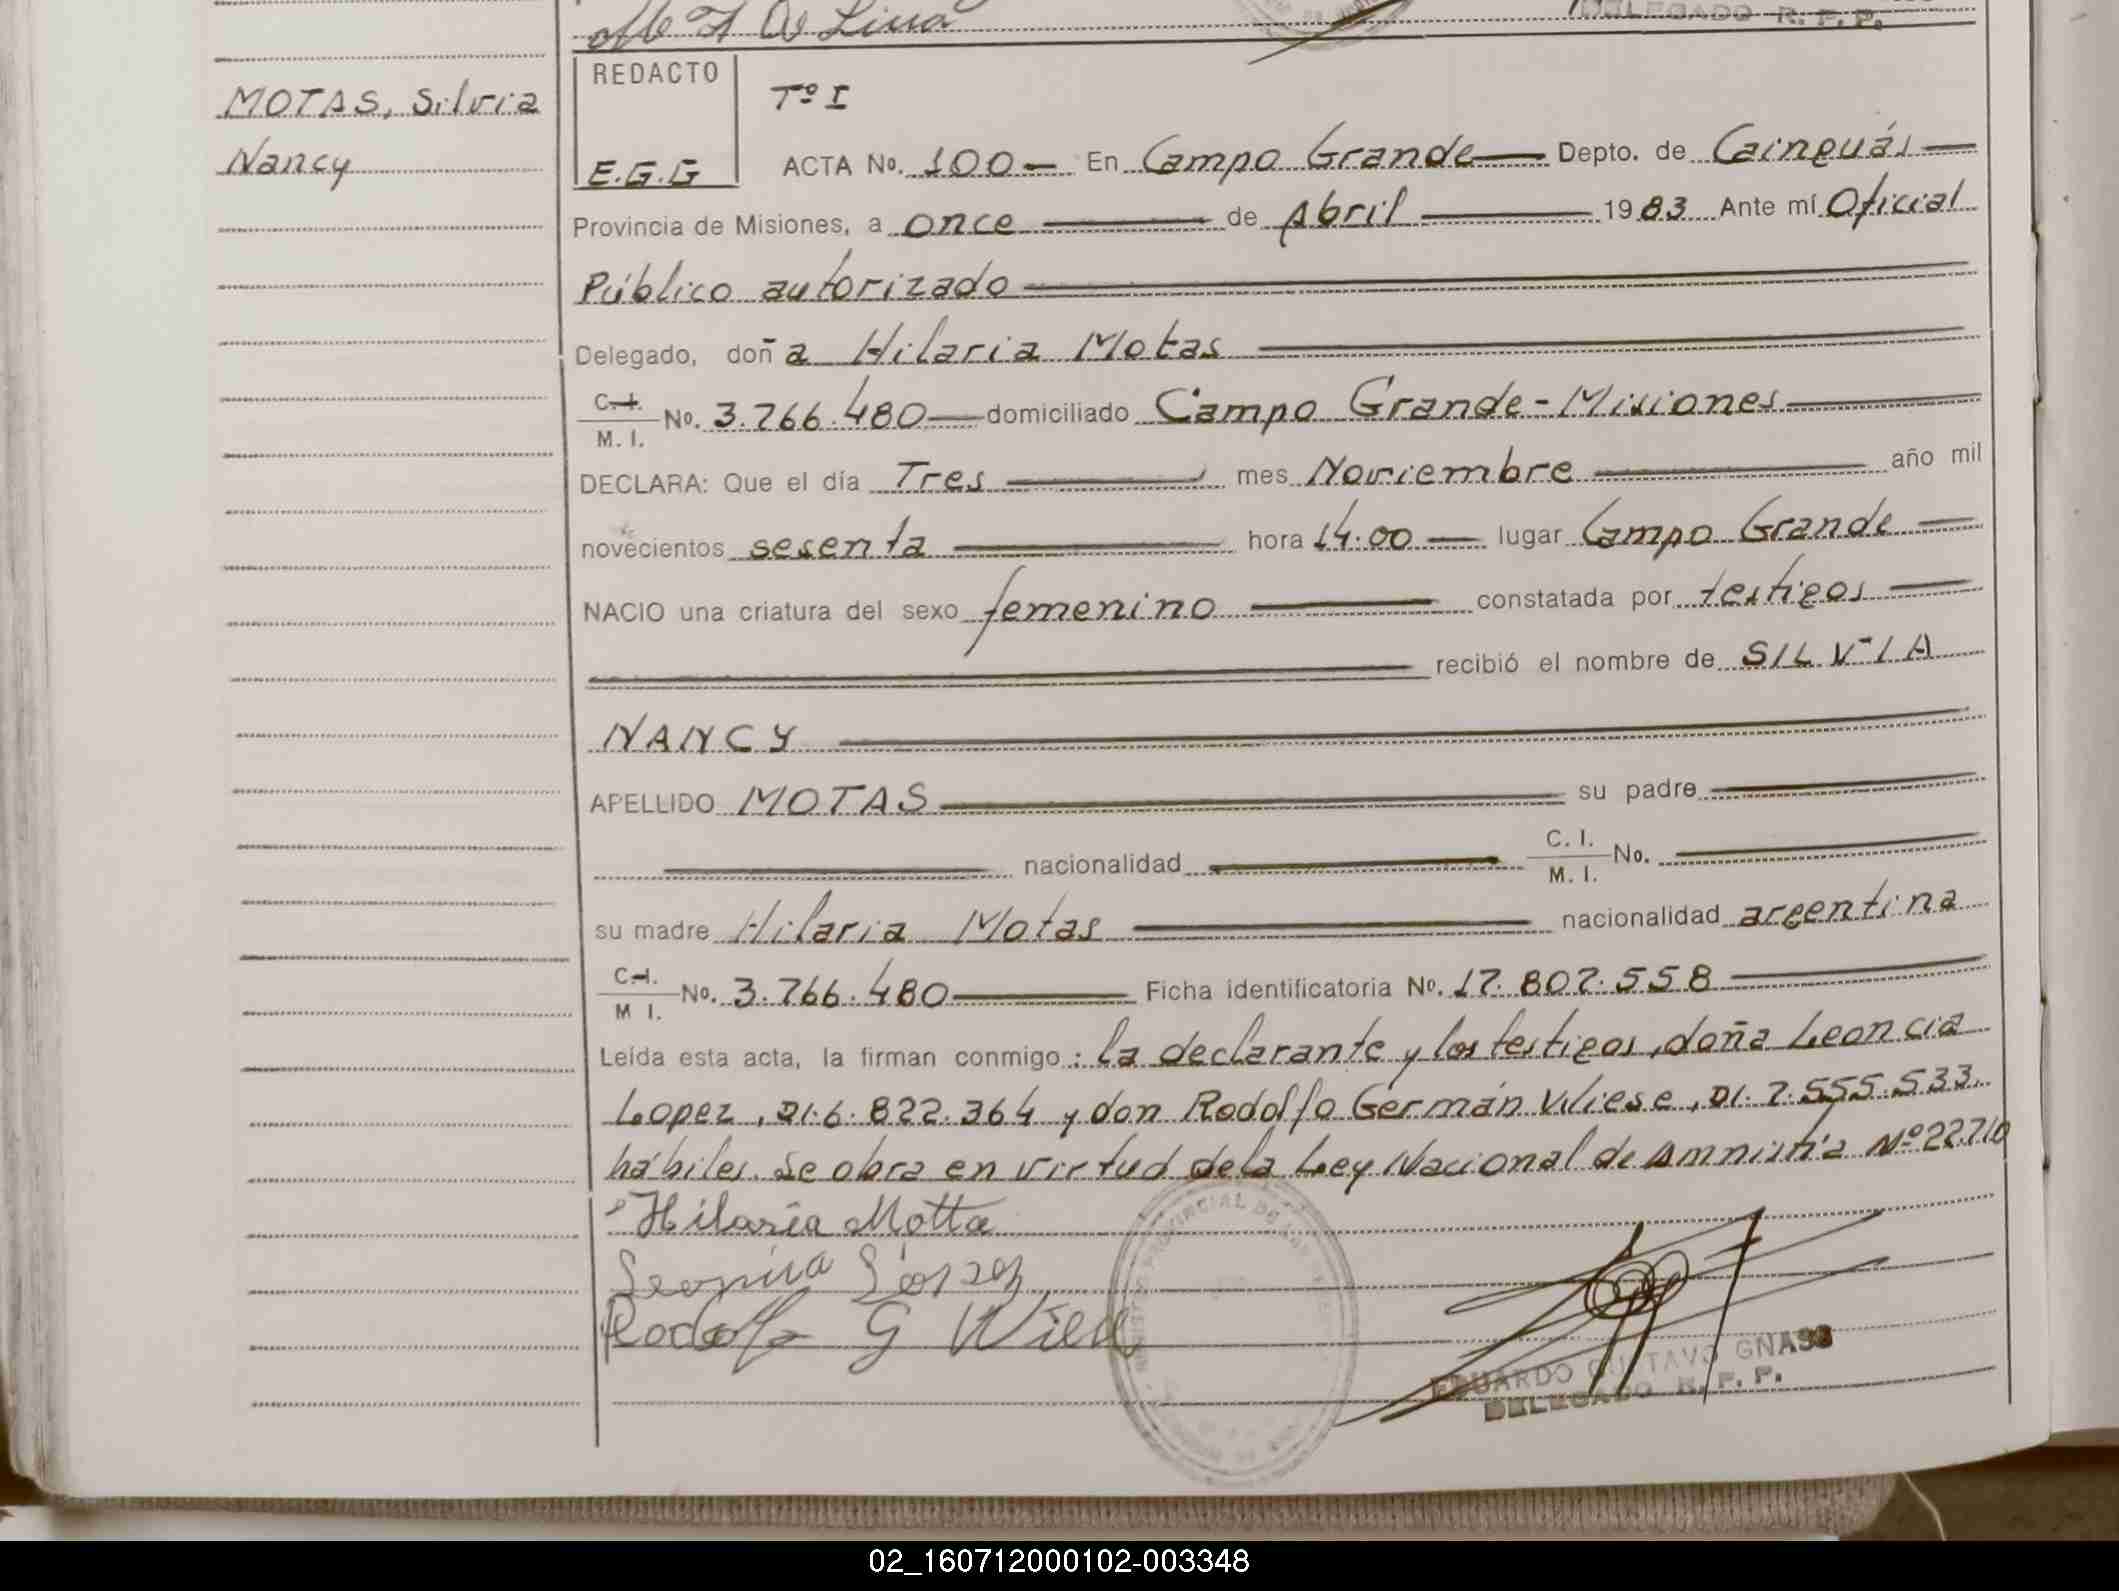 DELEGADO R. P. P.
MOTAS, Silvia
Nancy
REDACTO
E.G.G
Tº I
ACTA No. 100 En Campo Grande Depto. de Cainguás
Provincia de Misiones, a once de Abril 1983 Ante mí Oficial
Público autorizado
Delegado, doña Hilaria Motas
C.I. M. I. No. 3.766.480 domiciliado Campo Grande-Misiones
DECLARA: Que el día Tres mes Noviembre año mil
novecientos sesenta hora 14:00 lugar Campo Grande
NACIO una criatura del sexo femenino constatada por testigos
recibió el nombre de SILVIA
NANCY
APELLIDO MOTAS su padre
nacionalidad C. I. M. I. No.
su madre Hilaria Motas nacionalidad argentina
C.I. M I. No. 3.766.480 Ficha identificatoria No. 17.807.558
Leída esta acta, la firman conmigo: la declarante y los testigos, doña Leoncia
Lopez, DI.6.822.364 y don Rodolfo Germán Wiese, DI.7.555.533
hábiles. Se obra en virtud de la Ley Nacional de Amnistía Nº 22.710
Hilaria Motta
Rodolfo G
EDUARDO GUSTAVO GNASS
DELEGADO R. P. P.
02_160712000102-003348